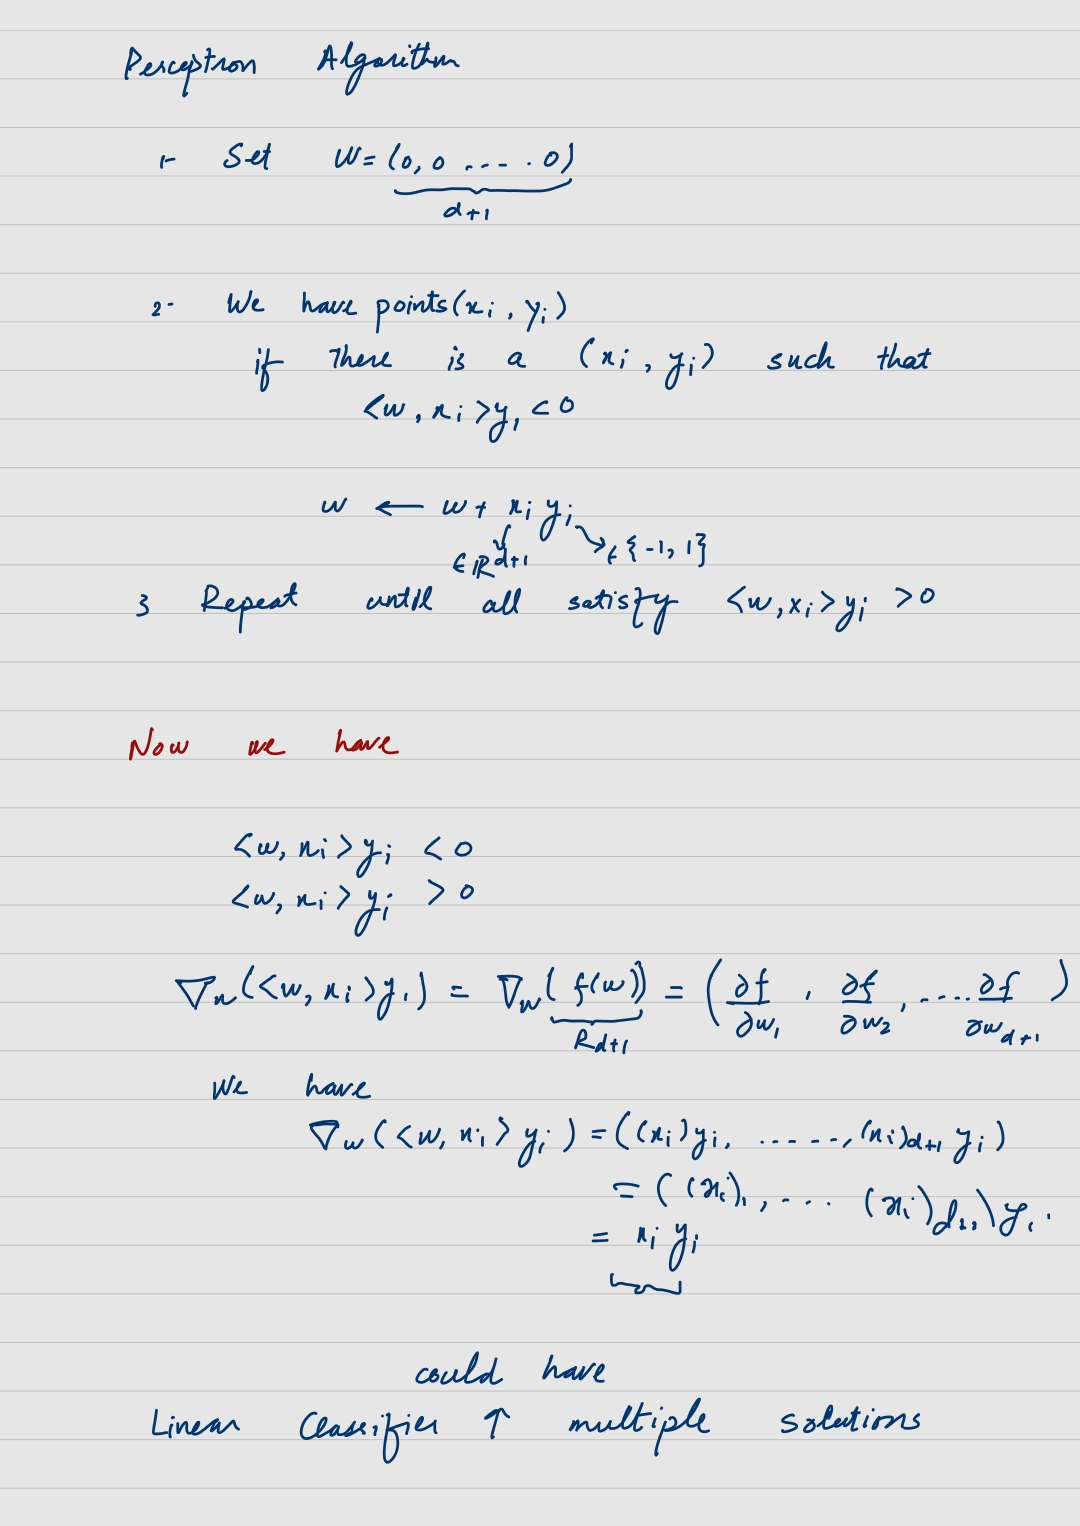 Perceptron Algorithm
1- Set W = (0, 0 ---- . 0)
d+1
2- We have points (xi, yi)
if there is a (xi, yi) such that
<w, xi> yi < 0
w ← w + xi yi
∈ R^d+1 ∈ {-1, 1}
3 Repeat until all satisfy <w, xi> yi > 0
Now we have
<w, xi> yi < 0
<w, xi> yi > 0
∇w (<w, xi> yi) = ∇w (f(w)) = (∂f/∂w1, ∂f/∂w2, ..... ∂f/∂wd+1)
Rd+1
We have
∇w (<w, xi> yi) = ((xi) yi, ......, (xi)d+1 yi)
= ((xi)1, .... (xi)d+1) yi
= xi yi
could have
Linear Classifier ↑ multiple solutions